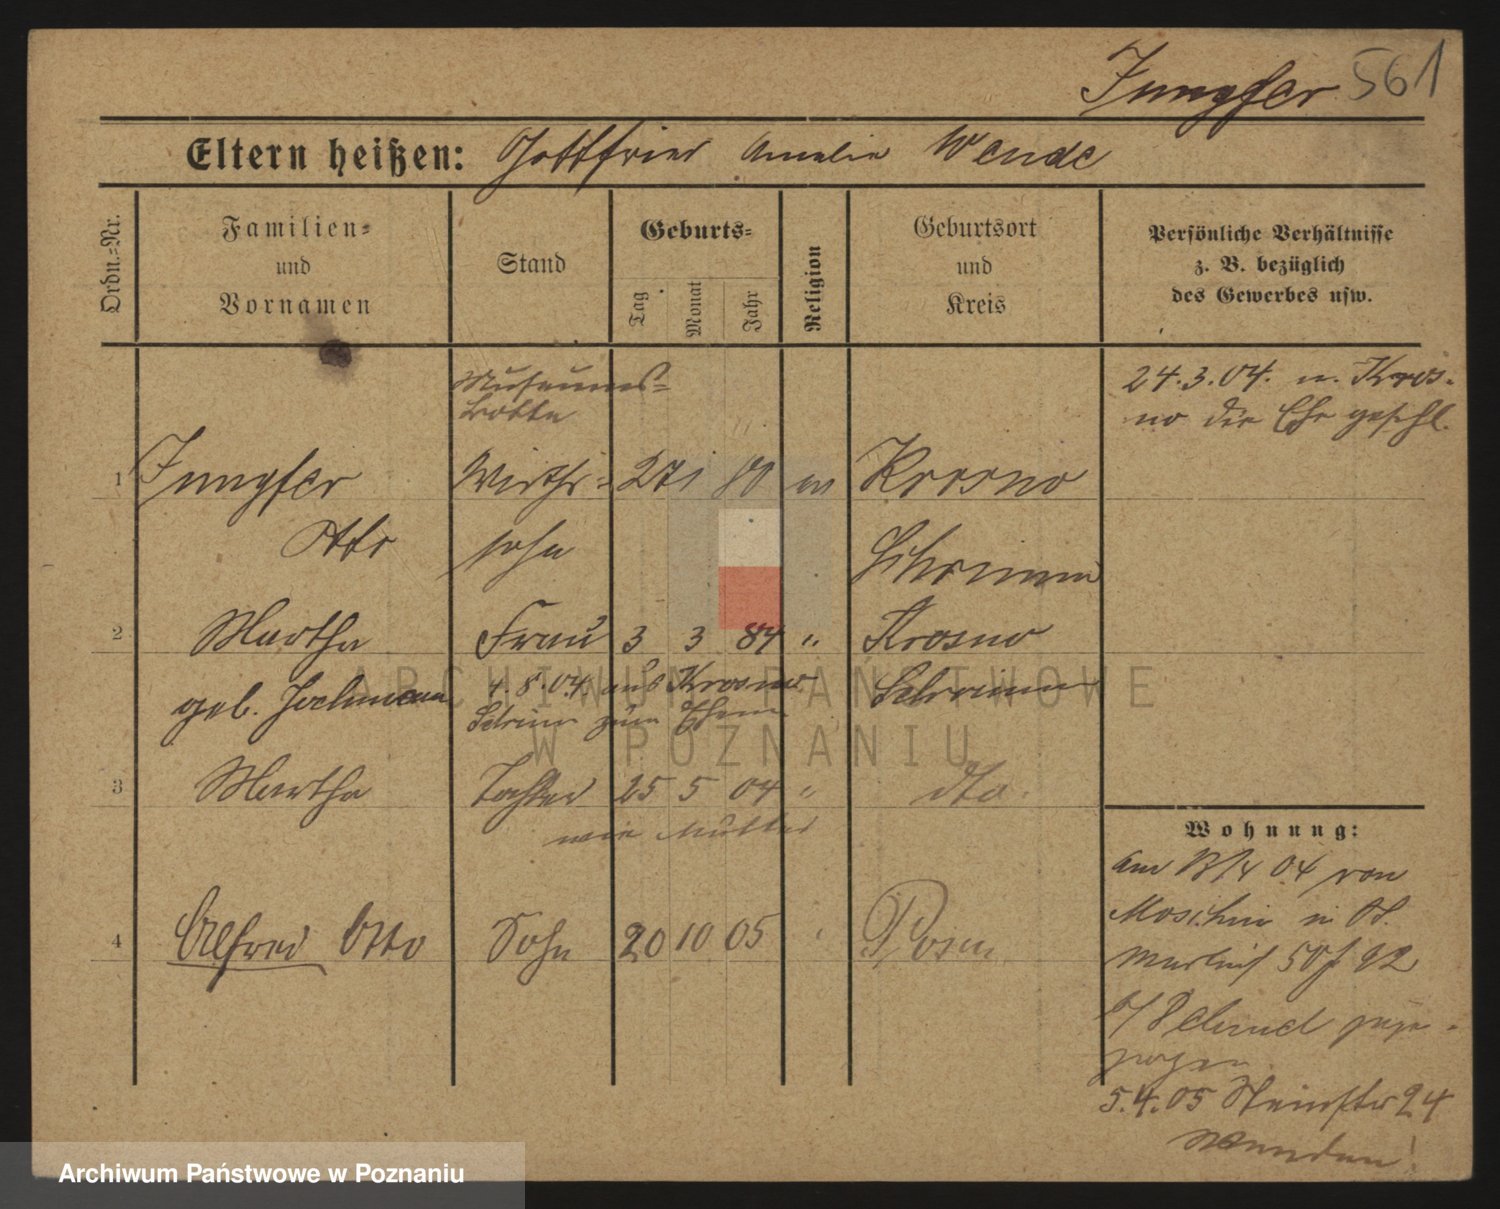 Jungfer 561
Eltern heißen: Gottfried Amalie Wende
Ordn.-Nr.
Familien- und Vornamen
Stand
Geburts-
Tag
Monat
Jahr
Religion
Geburtsort und Kreis
Persönliche Verhältnisse
z. B. bezüglich
des Gewerbes usw.
Museums-
24.3.04. in Kros-
no die Ehe geschl.
1 Jungfer Wirths- 27 1 80 ev Krosno
Otto sohn Schrimm
2 Martha Frau 3 3 84 " Krosno
geb. Jochmann 4.8.04. aus Krosno Schrimm
Schrimm zum Ehem.
3 Martha Tochter 25 5 04 " dto.
wie Mutter
4 Alfred Otto Sohn 20 10 05 Posen
Wohnung:
am 04 von
Moschin in St.
Martin 50 92
b/ zuge-
zogen
5.4.05 Steinstr 24
ARCHIWUM PAŃSTWOWE
W POZNANIU
Archiwum Państwowe w Poznaniu